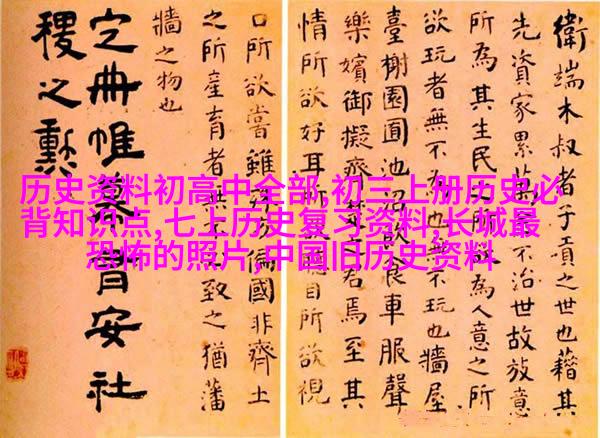 历史资料初高中全部,初三上册历史必
背知识点,七上历史复习资料,长城最
恐怖的照片,中国旧历史资料
衛端木叔者子貢之世也藉其
先資家累萬不治世故放意
所為其生民所為人意之所
欲玩者無不也無不玩也牆屋
臺榭園囿池沼飲食車服聲
樂嬪御擬齊君焉至其
情所欲好耳所聽目所欲視
口所欲嘗雖殊方偏國非齊土
之所產育者無致之猶藩
牆之物也
定冊帷幕有安社
稷之勲